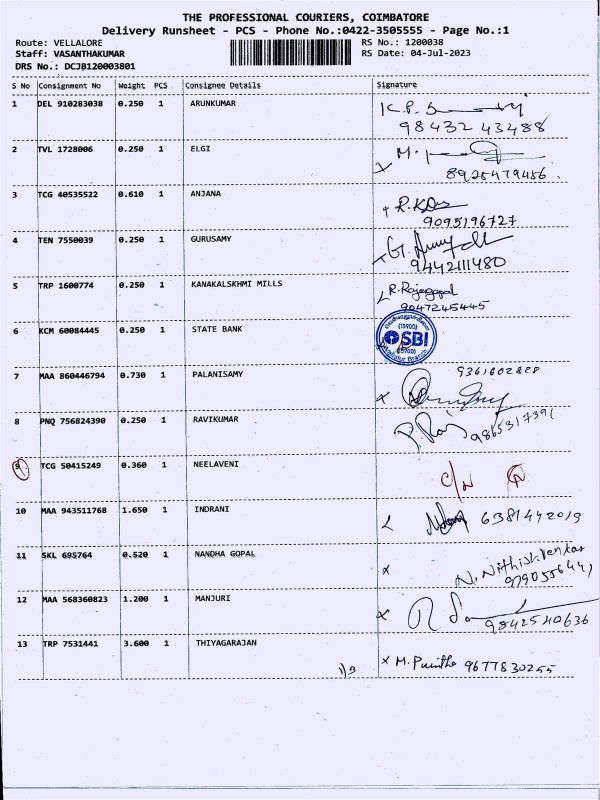 THE PROFESSIONAL COURIERS, COIMBATORE
Delivery Runsheet - PCS - Phone No.:0422-3505555 - Page No.:1
Route: VELLALORE RS No.: 1200038
Staff: VASANTHAKUMAR RS Date: 04-Jul-2023
DRS No.: DCJB120003801
S No Consignment No Weight PCS Consignee Details Signature
1 DEL 910283038 0.250 1 ARUNKUMAR K.P.
98432 43488
2 TVL 1728006 0.250 1 ELGI M.
8925479486.
3 TCG 40535522 0.610 1 ANJANA R.
9095196727
4 TEN 7550039 0.250 1 GURUSAMY
9442111480
5 TRP 1600774 0.250 1 KANAKALSKHMI MILLS R.Rajagopal
9047245445
6 KCM 60084445 0.250 1 STATE BANK (15900) SBI
Branch
7 MAA 860446794 0.730 1 PALANISAMY 9361602828
8 PNQ 756824390 0.250 1 RAVIKUMAR P.Raj 9865317391
9 TCG 50415249 0.360 1 NEELAVENI
10 MAA 943511768 1.650 1 INDRANI 6381442019
11 SKL 695764 0.520 1 NANDHA GOPAL x N. Nithish Venkar
12 MAA 568360823 1.200 1 MANJURI x
9842540636
13 TRP 7531441 3.600 1 THIYAGARAJAN x M. Punitha 9677830255